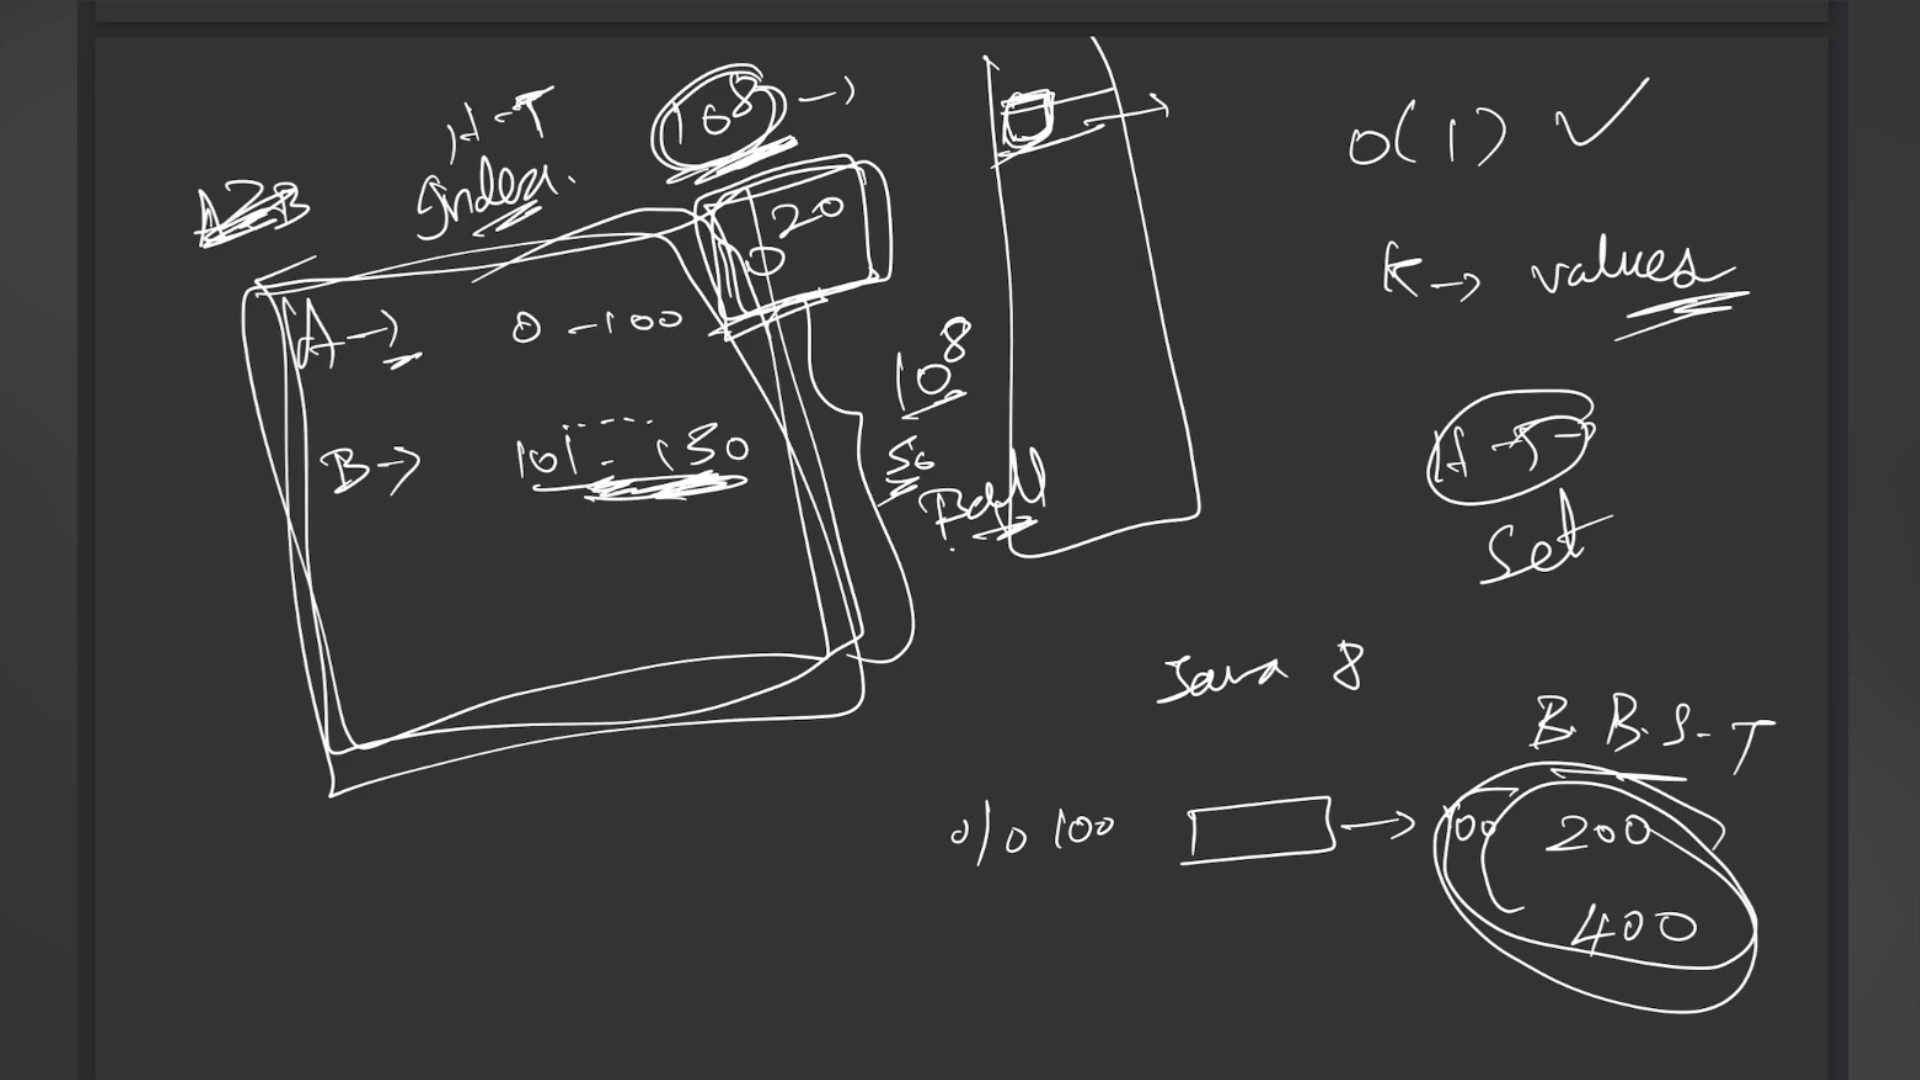 H-T
Index.
168 →
20
0
A → 0 - 100
B → 101 - 150
10^8
50
O(1) ✓
K → values
H-T
Set
Java 8
B. B. S. T
% 100
→ 100 200
400